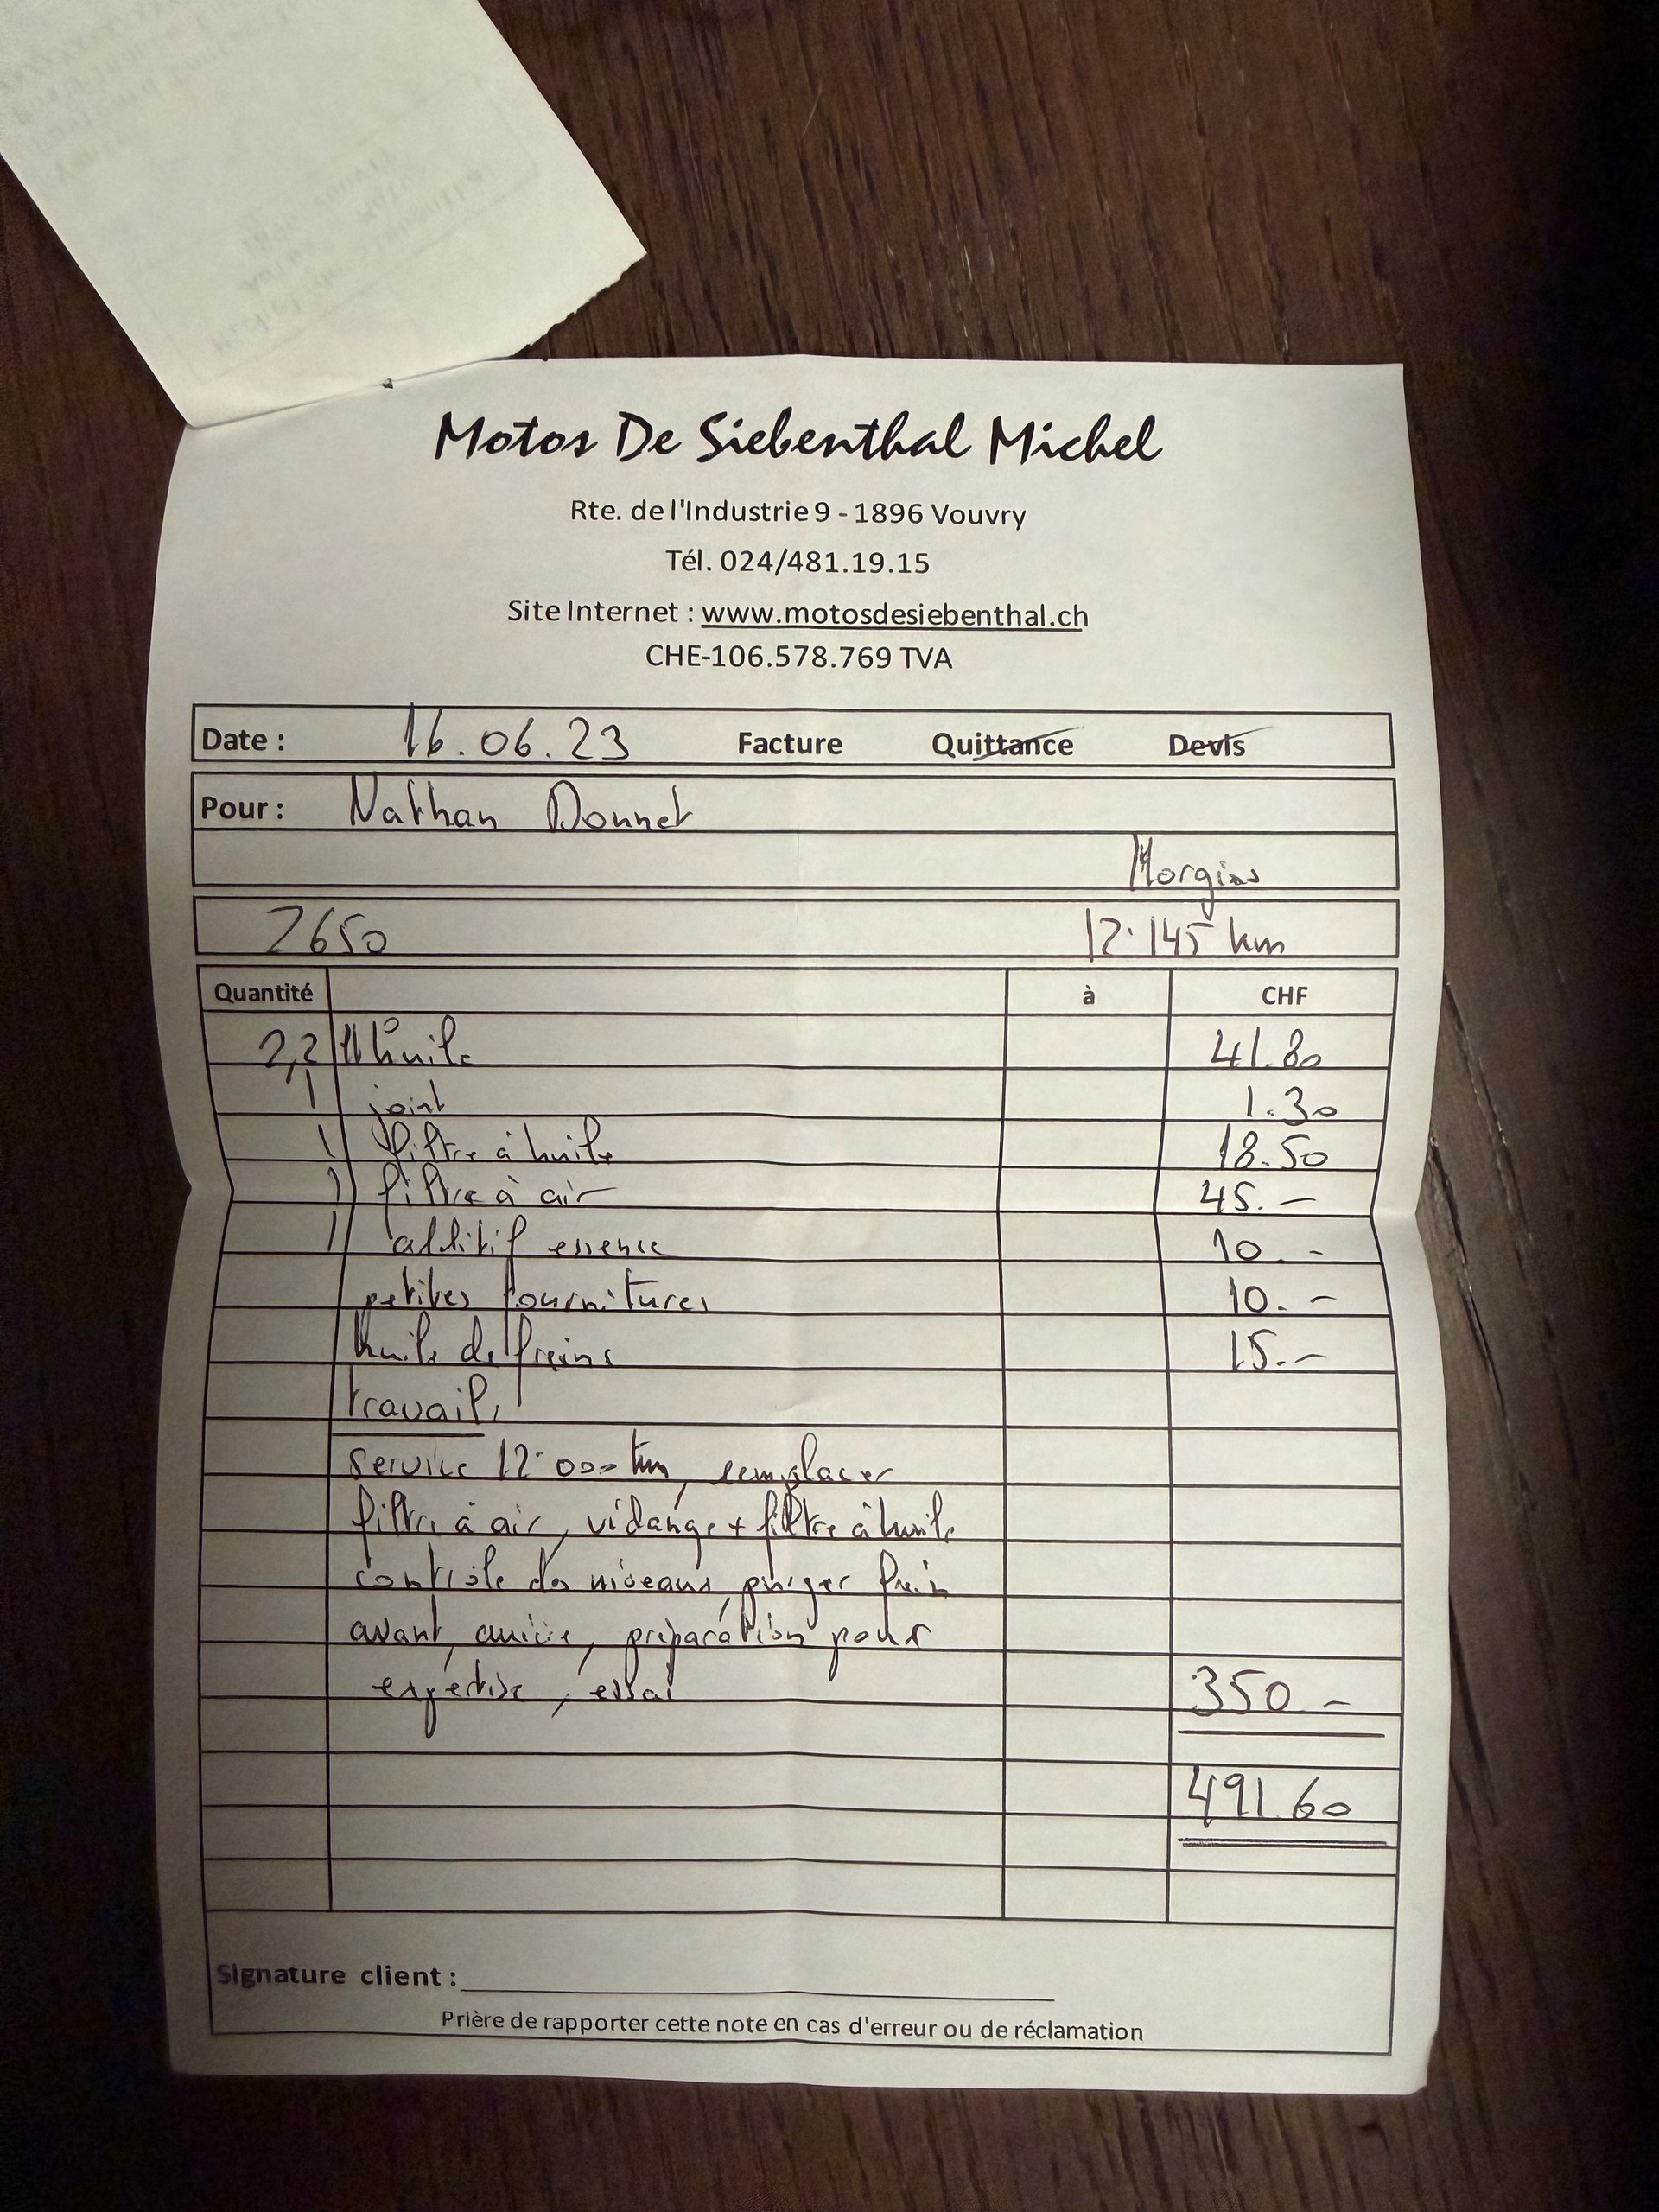 Motos De Siebenthal Michel
Rte. de l'Industrie 9 - 1896 Vouvry
Tél. 024/481.19.15
Site Internet : www.motosdesiebenthal.ch
CHE-106.578.769 TVA
Date : 16.06.23 Facture Quittance Devis
Pour : Nathan Donnet
Morgins
Z650 12'145 km
Quantité à CHF
2,2 huile 41.80
1 joint 1.30
1 filtre à huile 18.50
1 filtre à air 45.-
1 additif essence 10.-
petites fournitures 10.-
huile de freins 15.-
travail,
service 12'000 km, remplacer
filtre à air, vidange + filtre à huile
contrôle des niveaux, purger frein
avant, arrière, préparation pour
expertise, essai 350.-
491.60
Signature client :
Prière de rapporter cette note en cas d'erreur ou de réclamation